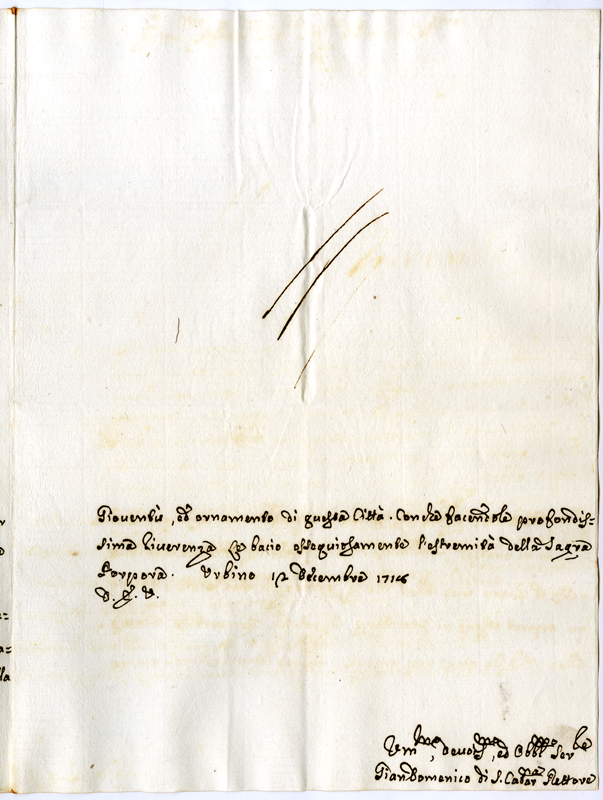 Gioventù, ed ornamento di questa Città. Con che facendole profondis=
sima riverenza Le bacio ossequiosamente l'estremità della Sagra
Porpora. Urbino 12 Decembre 1716
D. E. V.
Um.mo, devot.mo, ed Obbl.mo Ser.re
Gian Domenico di S. Cat.na Rettore